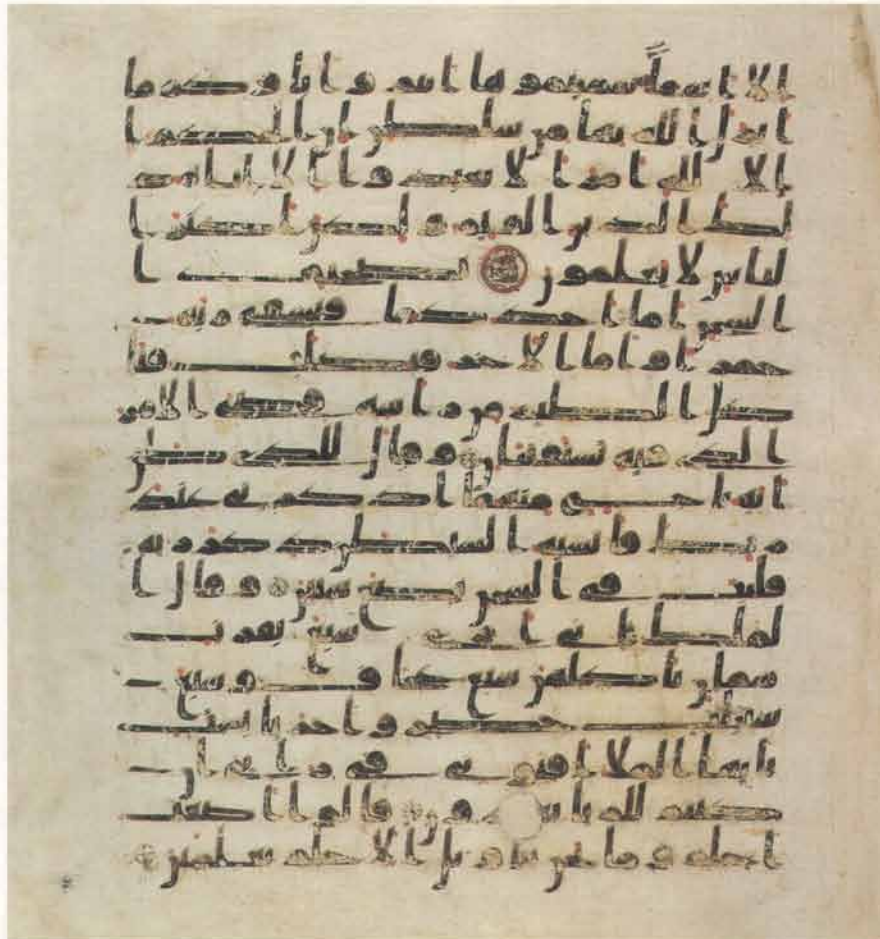 الا اسما سميتموها انتم و اباوكم ما
انزل الله بها من سلطن ان الحكم ا
لا لله امر ا لا تعبدوا ا لا اياه ذ
لك الدين القيم و لكن اكثر ا
لناس لا يعلمون يصحبي ا
لسجن اما احدكما فيسقي ربه
خمرا و اما الاخر فيصلب فتا
كل الطير من راسه قضي الامر
الذي فيه تستفتين و قال للذي ظن
انه ناج منهما اذكرني عند
ربك فانسيه الشيطن ذكر ربه
فلبث في السجن بضع سنين و قال ا
لملك اني ارى سبع بقرت
سمان ياكلهن سبع عجاف و سبع
سنبلت خضر و اخر يابست
يايها الملا افتوني في رءيي ان
كنتم للريا تعبرون قالوا اضغث
احلم و ما نحن بتاويل الاحلم بعلمين